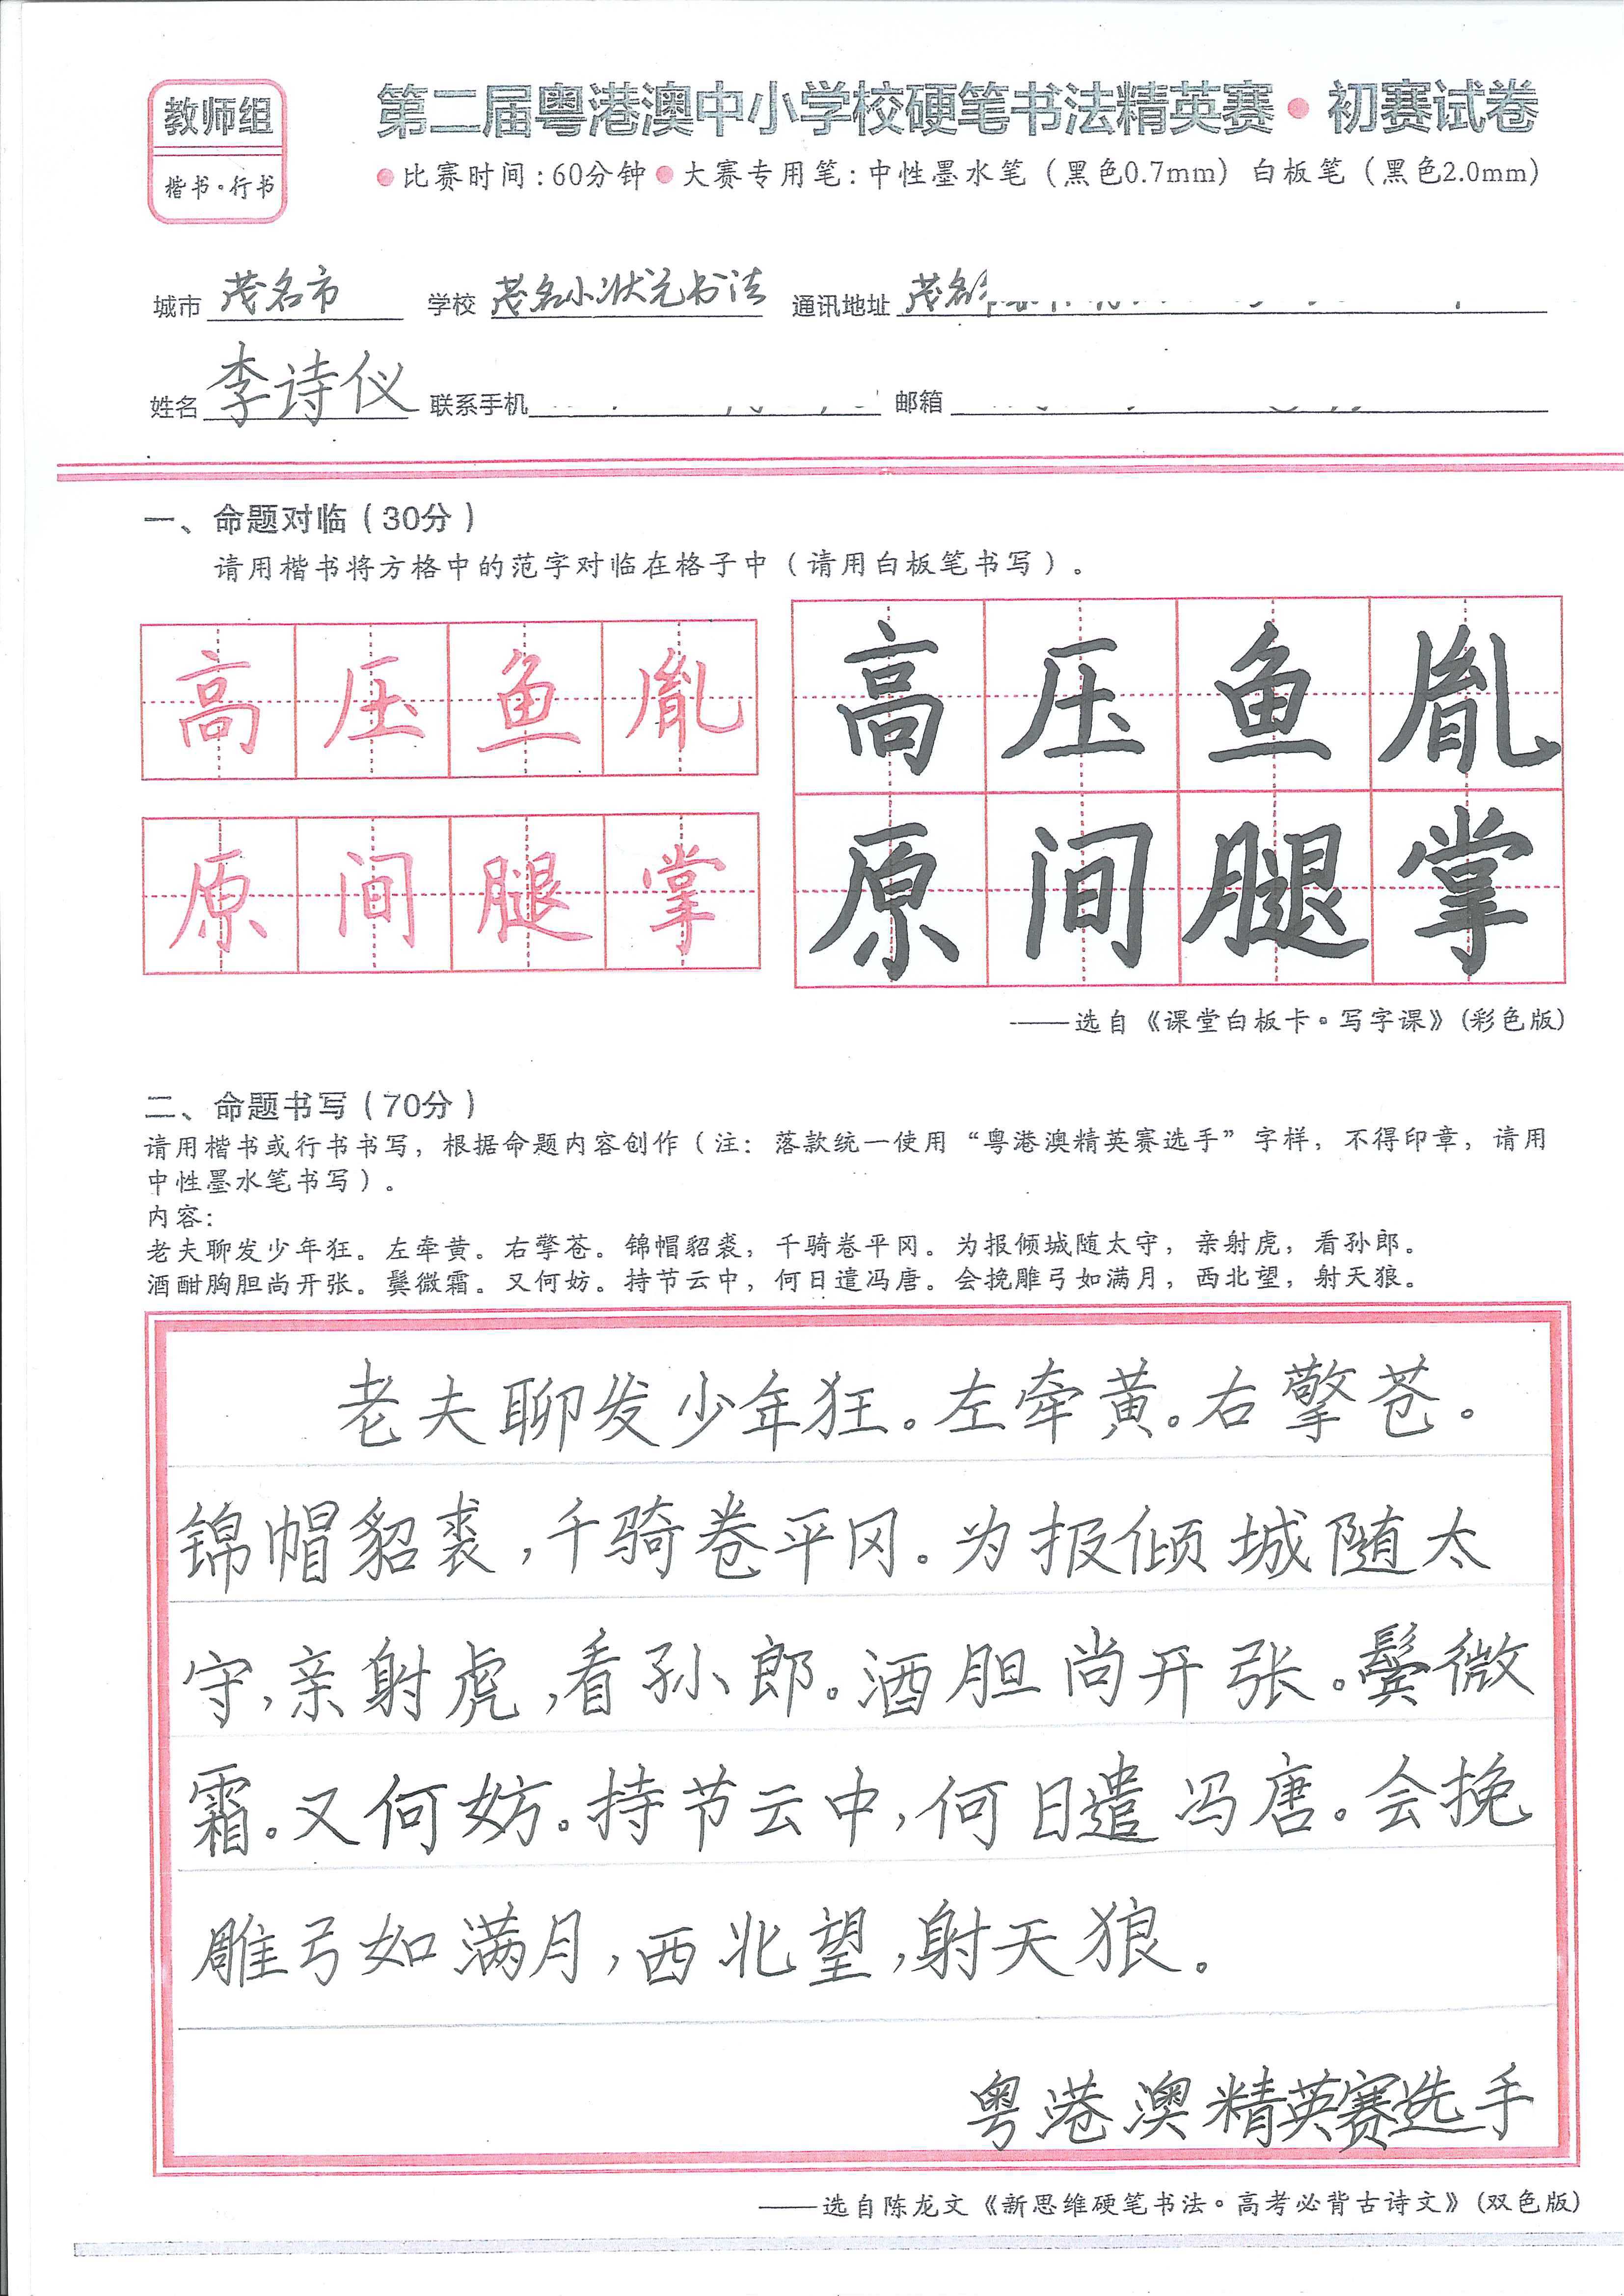 教师组
楷书·行书
第二届粤港澳中小学校硬笔书法精英赛·初赛试卷
●比赛时间:60分钟●大赛专用笔:中性墨水笔(黑色0.7mm) 白板笔(黑色2.0mm)
城市 茂名市 学校 茂名小状元书法 通讯地址 茂名
姓名 李诗仪 联系手机 邮箱
一、命题对临(30分)
请用楷书将方格中的范字对临在格子中(请用白板笔书写)。
高压鱼胤
原间腿掌
高压鱼胤
原间腿掌
——选自《课堂白板卡·写字课》(彩色版)
二、命题书写(70分)
请用楷书或行书书写,根据命题内容创作(注:落款统一使用“粤港澳精英赛选手”字样,不得印章,请用
中性墨水笔书写)。
内容:
老夫聊发少年狂。左牵黄。右擎苍。锦帽貂裘,千骑卷平冈。为报倾城随太守,亲射虎,看孙郎。
酒酣胸胆尚开张。鬓微霜。又何妨。持节云中,何日遣冯唐。会挽雕弓如满月,西北望,射天狼。
老夫聊发少年狂。左牵黄。右擎苍。
锦帽貂裘,千骑卷平冈。为报倾城随太
守,亲射虎,看孙郎。酒胆尚开张。鬓微
霜。又何妨。持节云中,何日遣冯唐。会挽
雕弓如满月,西北望,射天狼。
粤港澳精英赛选手
——选自陈龙文《新思维硬笔书法·高考必背古诗文》(双色版)